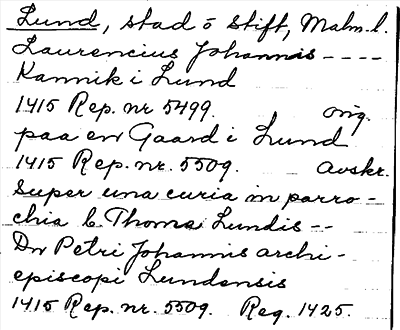 Lund, stad o Stift, Malm. l.
Laurencius Johannis ----
Kannik i Lund
1415 Rep. nr 5499. orig.
paa en Gaard i Lund
1415 Rep. nr. 5509. Avskr.
super una curia in parro-
chia b. Thome Lundis --
Dn Petri Johannis archi-
episcopi Lundensis
1415 Rep. nr. 5509. Reg. 1425.